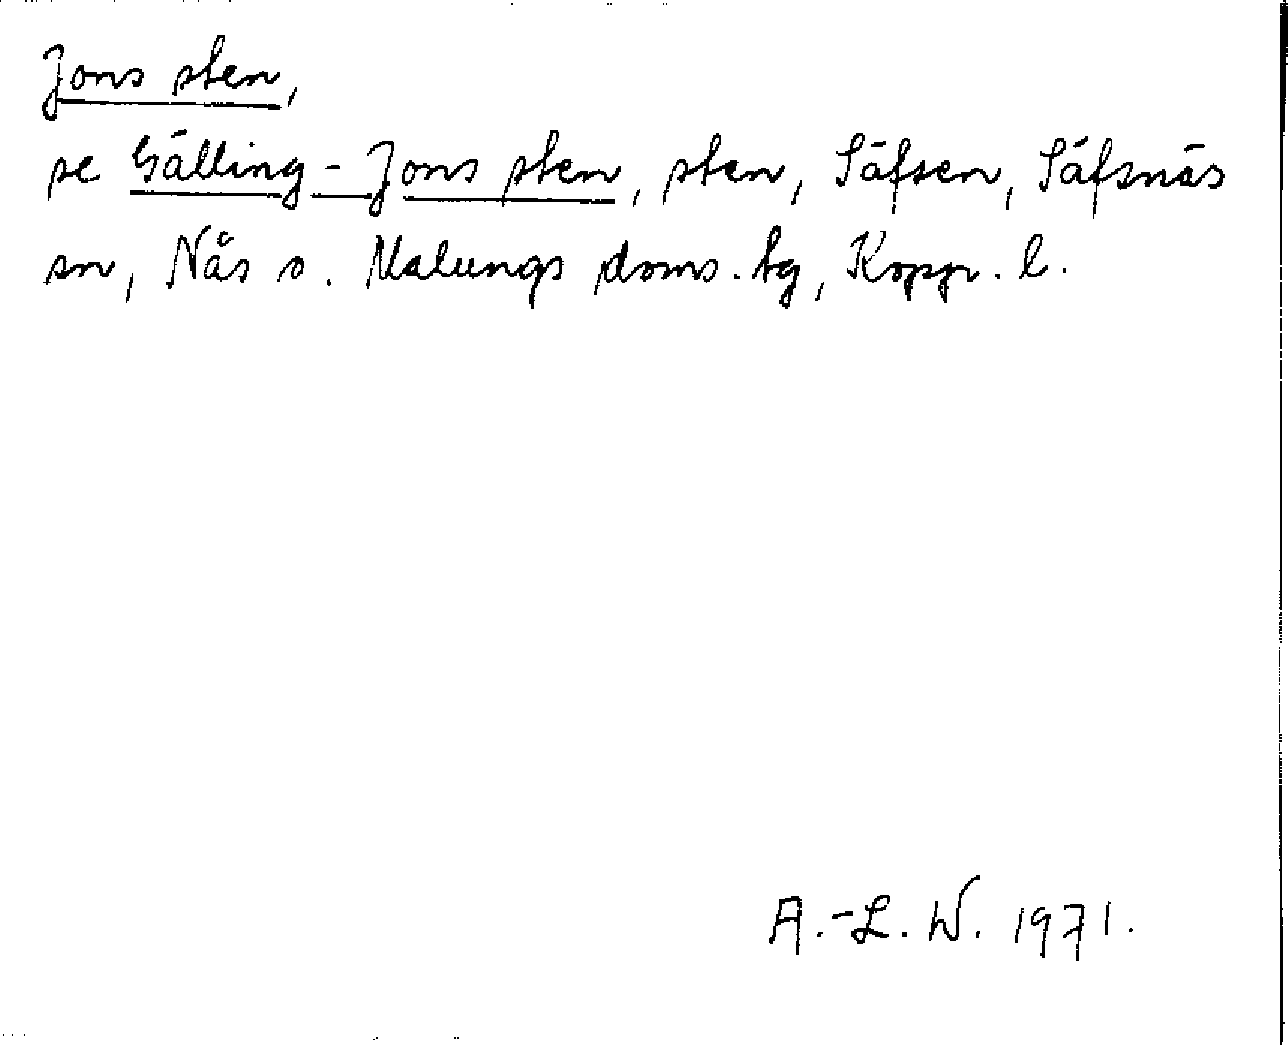 Jons sten,
se Gälling-Jons sten, sten, Säfsen, Säfsnäs
sn, Nås o. Malungs doms. tg, Koppr. l.
A.-L. W. 1971.